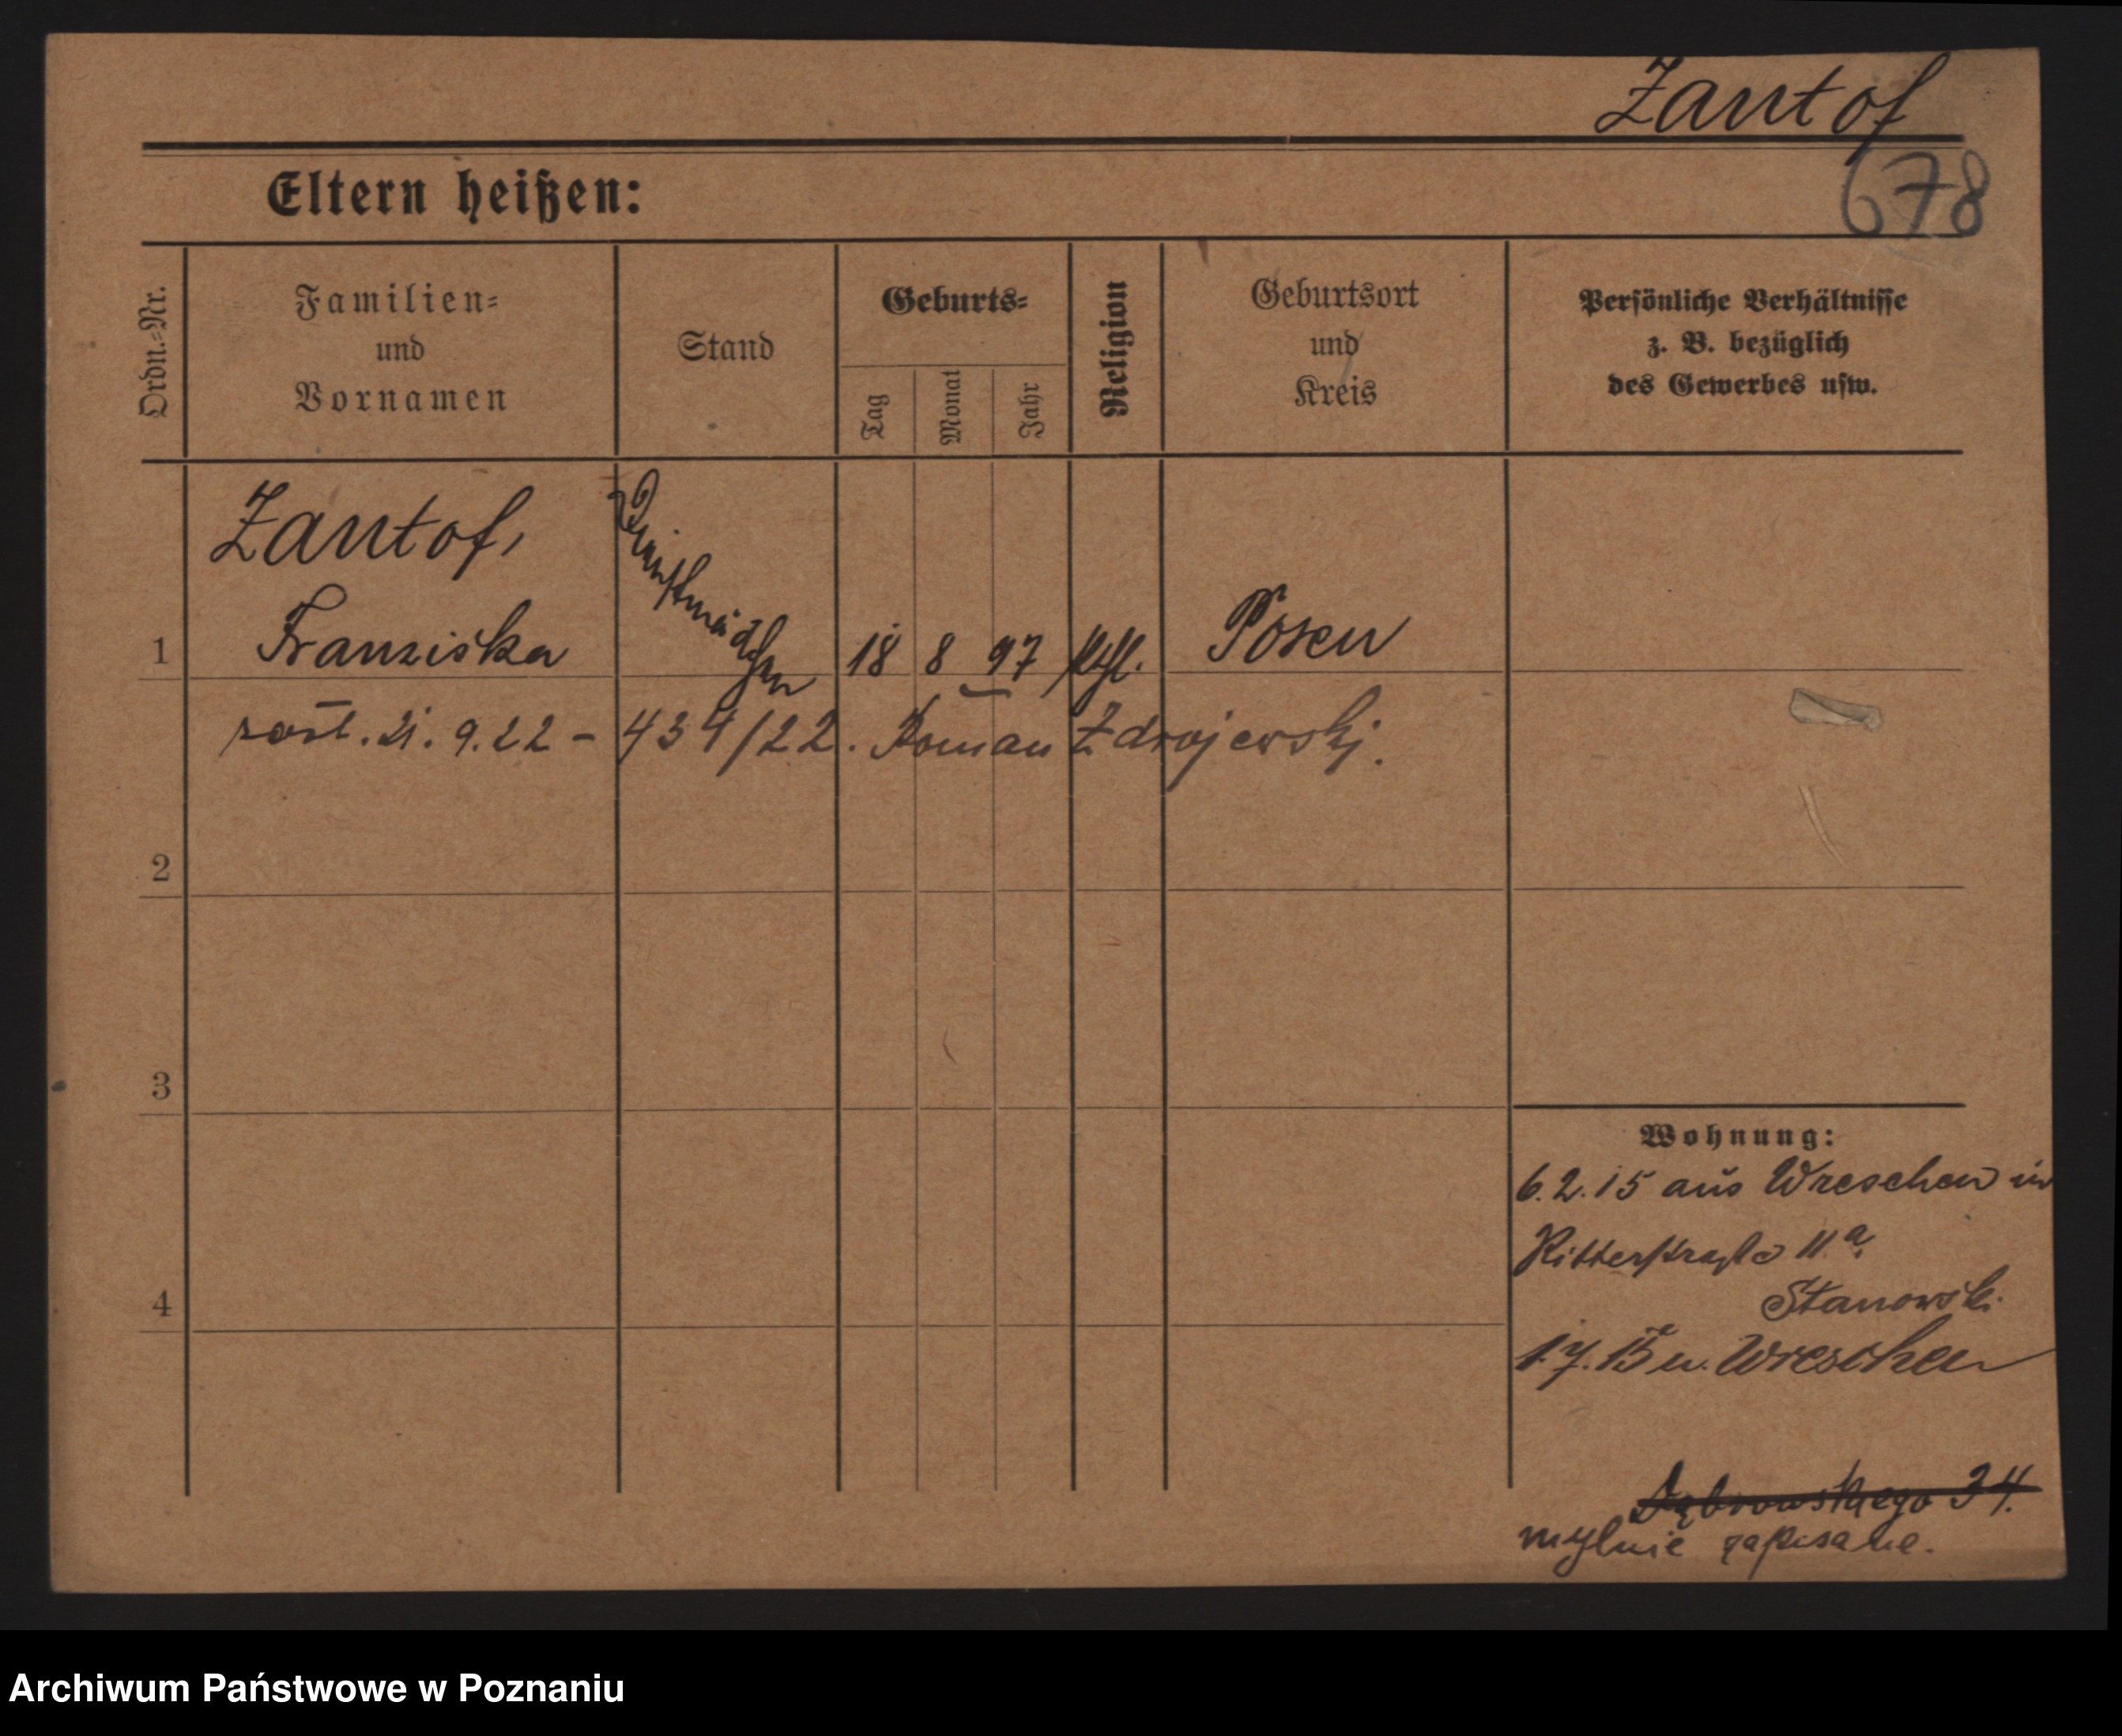 Zantof
678
Eltern heißen:
Ordn.=Nr.
Familien=
und
Vornamen
Stand
Geburts=
Tag
Monat
Jahr
Religion
Geburtsort
und
Kreis
Persönliche Verhältnisse
z. B. bezüglich
des Gewerbes usw.
Zantof,
1 Franziska Dienstmädchen 18 8 97 kth. Posen
21. 9. 22 - 434/22. Roman Zdrojewski.
2
3
4
Wohnung:
6. 2. 15 aus Wreschen in
Ritterstraße 11a
Stanowski.
1.7.15 n. Wreschen
Dąbrowskiego 34.
mylnie zapisane.
Archiwum Państwowe w Poznaniu